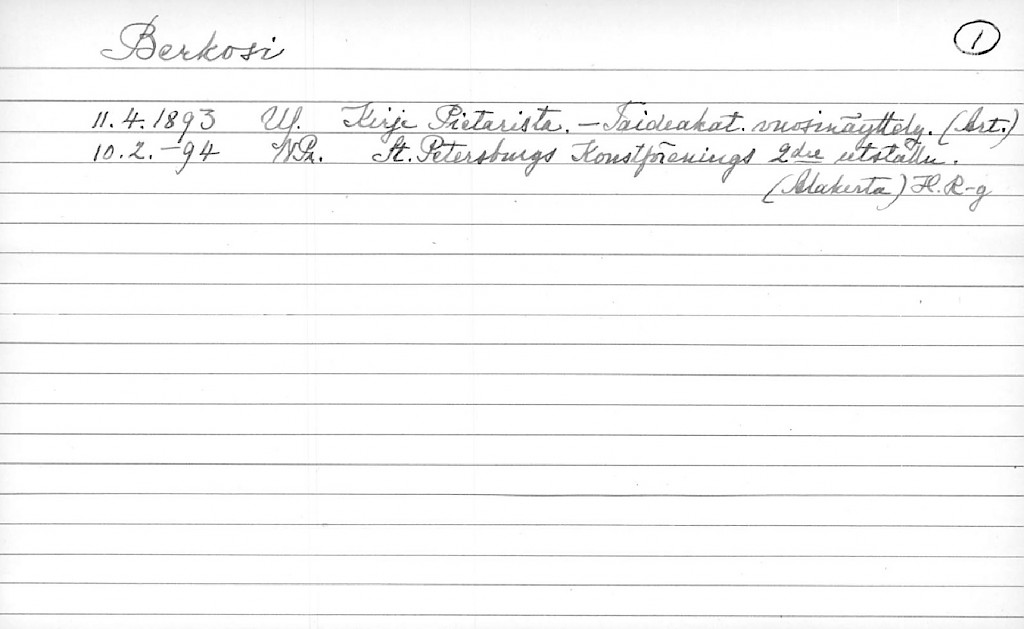 Berkosi 1
11.4.1893 Uf. Kirje Pietarista. — Taideakat. vuosinäyttely. (Art.)
10.2.-94 NPr. St. Petersburgs Konstförenings 2dre utställn.
(Alakerta) H. R-g